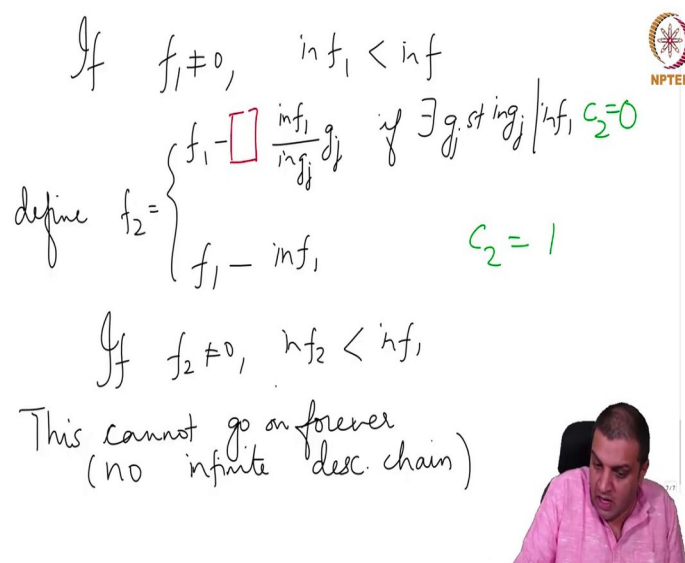 If f₁ ≠ 0, in f₁ < in f
define f₂ = { f₁ - □ in f₁ / in gⱼ gⱼ if ∃ gⱼ st in gⱼ | in f₁ c₂ = 0
f₁ - in f₁ c₂ = 1
If f₂ ≠ 0, in f₂ < in f₁
This cannot go on forever
(no infinite desc. chain)
NPTEL
7/7